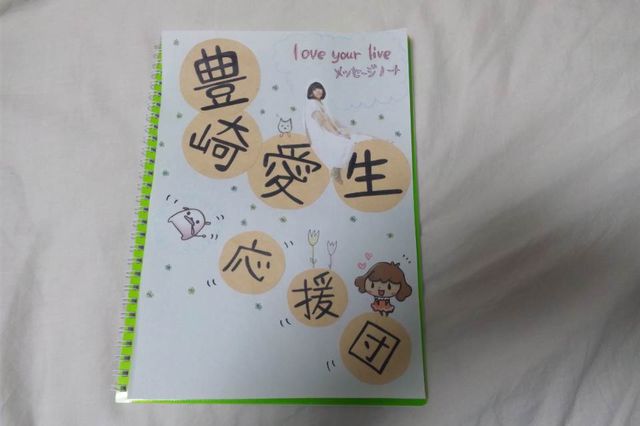 love your live
メッセージノート
豊崎愛生
応援団